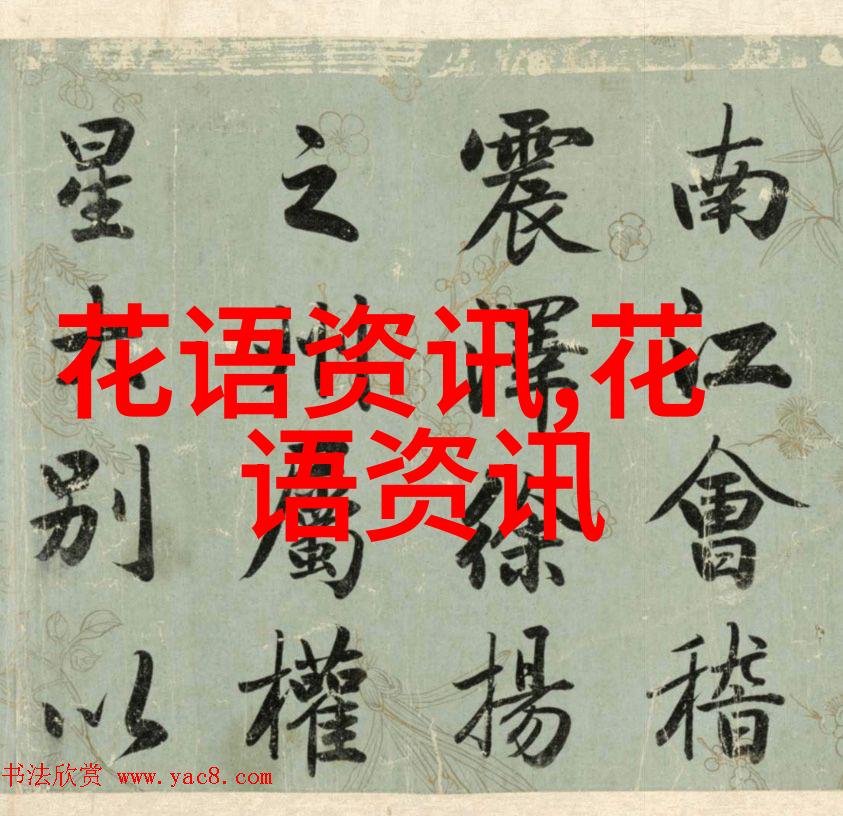 南江會稽
震澤徐揚
之州屬權
星别以
花语资讯,花
语资讯
书法欣赏 www.yac8.com